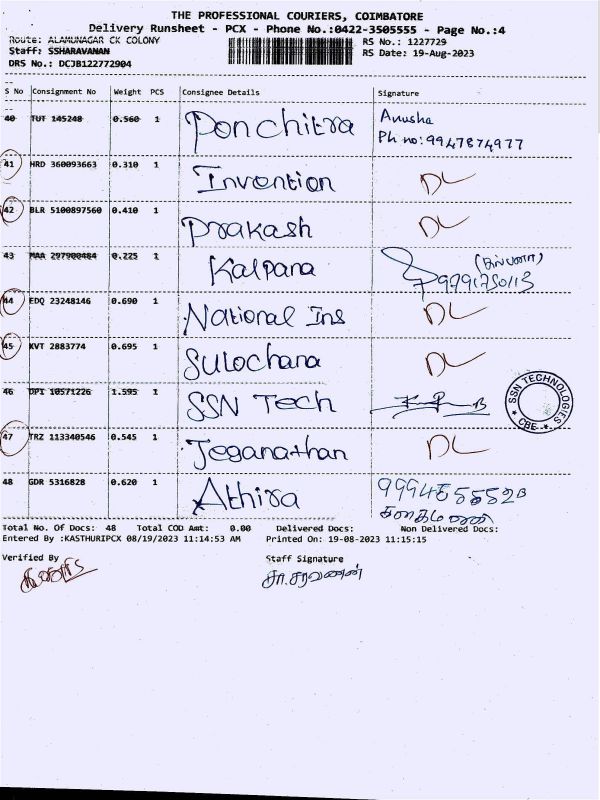 THE PROFESSIONAL COURIERS, COIMBATORE
Delivery Runsheet - PCX - Phone No.:0422-3505555 - Page No.:4
Route: ALAMUNAGAR CK COLONY
RS No.: 1227729
Staff: SSHARAVANAN
RS Date: 19-Aug-2023
DRS No.: DCJB122772904
S No Consignment No Weight PCS Consignee Details Signature
40 TUT 145248 0.560 1 Ponchitra Anusha
Ph no: 9947874977
41 HRD 360093663 0.310 1 Invention DL
42 BLR 5100897560 0.410 1 Prakash DL
43 MAA 297900484 0.225 1 Kalpana
44 EDQ 23248146 0.690 1 National Ins DL
45 KVT 2883774 0.695 1 Sulochana DL
46 DPI 10571226 1.595 1 SSN Tech
SSN TECHNOLOGIES
* CBE *
47 TRZ 113340546 0.545 1 Jeganathan DL
48 GDR 5316828 0.620 1 Athira
Total No. Of Docs: 48 Total COD Amt: 0.00 Delivered Docs: Non Delivered Docs:
Entered By :KASTHURIPCX 08/19/2023 11:14:53 AM Printed On: 19-08-2023 11:15:15
Verified By Staff Signature
சா.சரவணன்